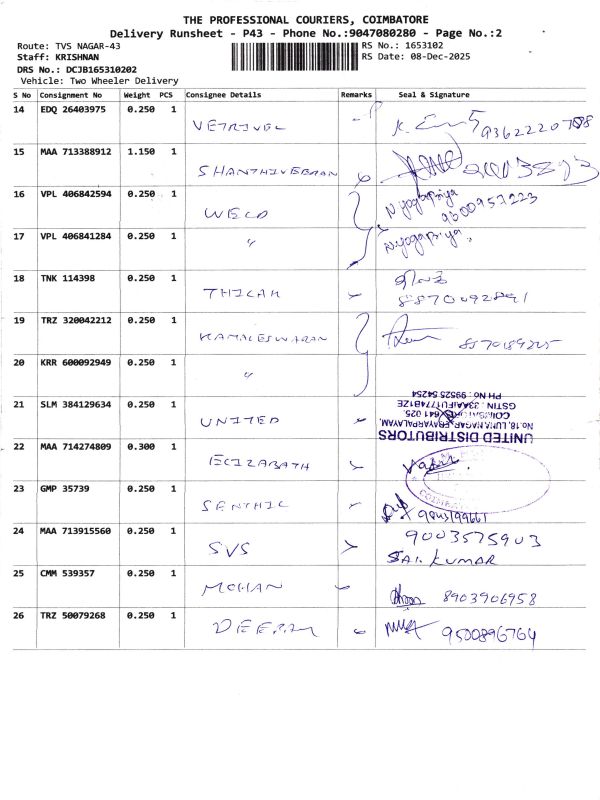 THE PROFESSIONAL COURIERS, COIMBATORE
Delivery Runsheet - P43 - Phone No.:9047080280 - Page No.:2
Route: TVS NAGAR-43 RS No.: 1653102
Staff: KRISHNAN RS Date: 08-Dec-2025
DRS No.: DCJB165310202
Vehicle: Two Wheeler Delivery
S No Consignment No Weight PCS Consignee Details Remarks Seal & Signature
14 EDQ 26403975 0.250 1
VETRIVEL
15 MAA 713388912 1.150 1
16 VPL 406842594 0.250 1
WELD N.yogapriya
9500957223
17 VPL 406841284 0.250 1
" N.yogapriya.
18 TNK 114398 0.250 1
THILAK
19 TRZ 320042212 0.250 1
KAMALESWARAN
20 KRR 600092949 0.250 1
"
21 SLM 384129634 0.250 1
UNITED
UNITED DISTRIBUTORS
No.18, LUNA NAGAR, EBAYARPALAYAM,
COIMBATORE - 641 025.
GSTIN : 33AAIFU1774B1ZE
PH NO : 99525 54254
22 MAA 714274809 0.300 1
ELIZABATH
23 GMP 35739 0.250 1
SENTHIL 9843199661
24 MAA 713915560 0.250 1
SVS 9003575903
SAI KUMAR
25 CMM 539357 0.250 1
MOHAN 8903906958
26 TRZ 50079268 0.250 1
DEEPA 9500896764